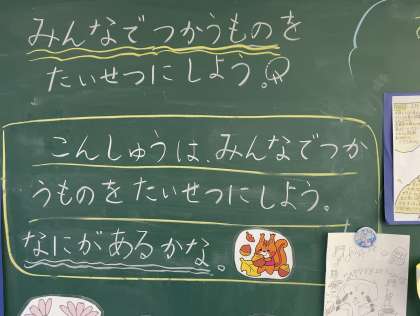 みんなでつかうものを
たいせつにしよう。
こんしゅうは、みんなでつか
うものをたいせつにしよう。
なにがあるかな。